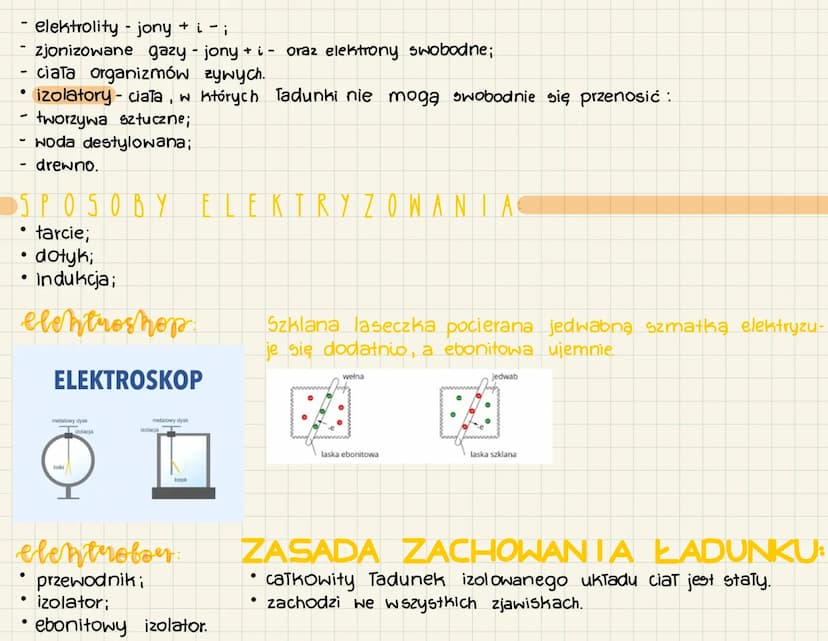 - elektrolity - jony + i - ;
- zjonizowane gazy - jony + i - oraz elektrony swobodne;
- ciała organizmów żywych.
• izolatory - ciała, w których ładunki nie mogą swobodnie się przenosić :
- tworzywa sztuczne;
- woda destylowana;
- drewno.
SPOSOBY ELEKTRYZOWANIA:
• tarcie;
• dotyk;
• indukcja;
elektroskop:
Szklana laseczka pocierana jedwabną szmatką elektryzu-
je się dodatnio, a ebonitowa ujemnie.
ELEKTROSKOP
metalowy dysk
izolacja
listki
metalowy dysk
izolacja
listek
wełna
-e
laska ebonitowa
jedwab
-e
laska szklana
elektrofor:
• przewodnik;
• izolator;
• ebonitowy izolator.
ZASADA ZACHOWANIA ŁADUNKU:
• całkowity ładunek izolowanego układu ciał jest stały.
• zachodzi we wszystkich zjawiskach.